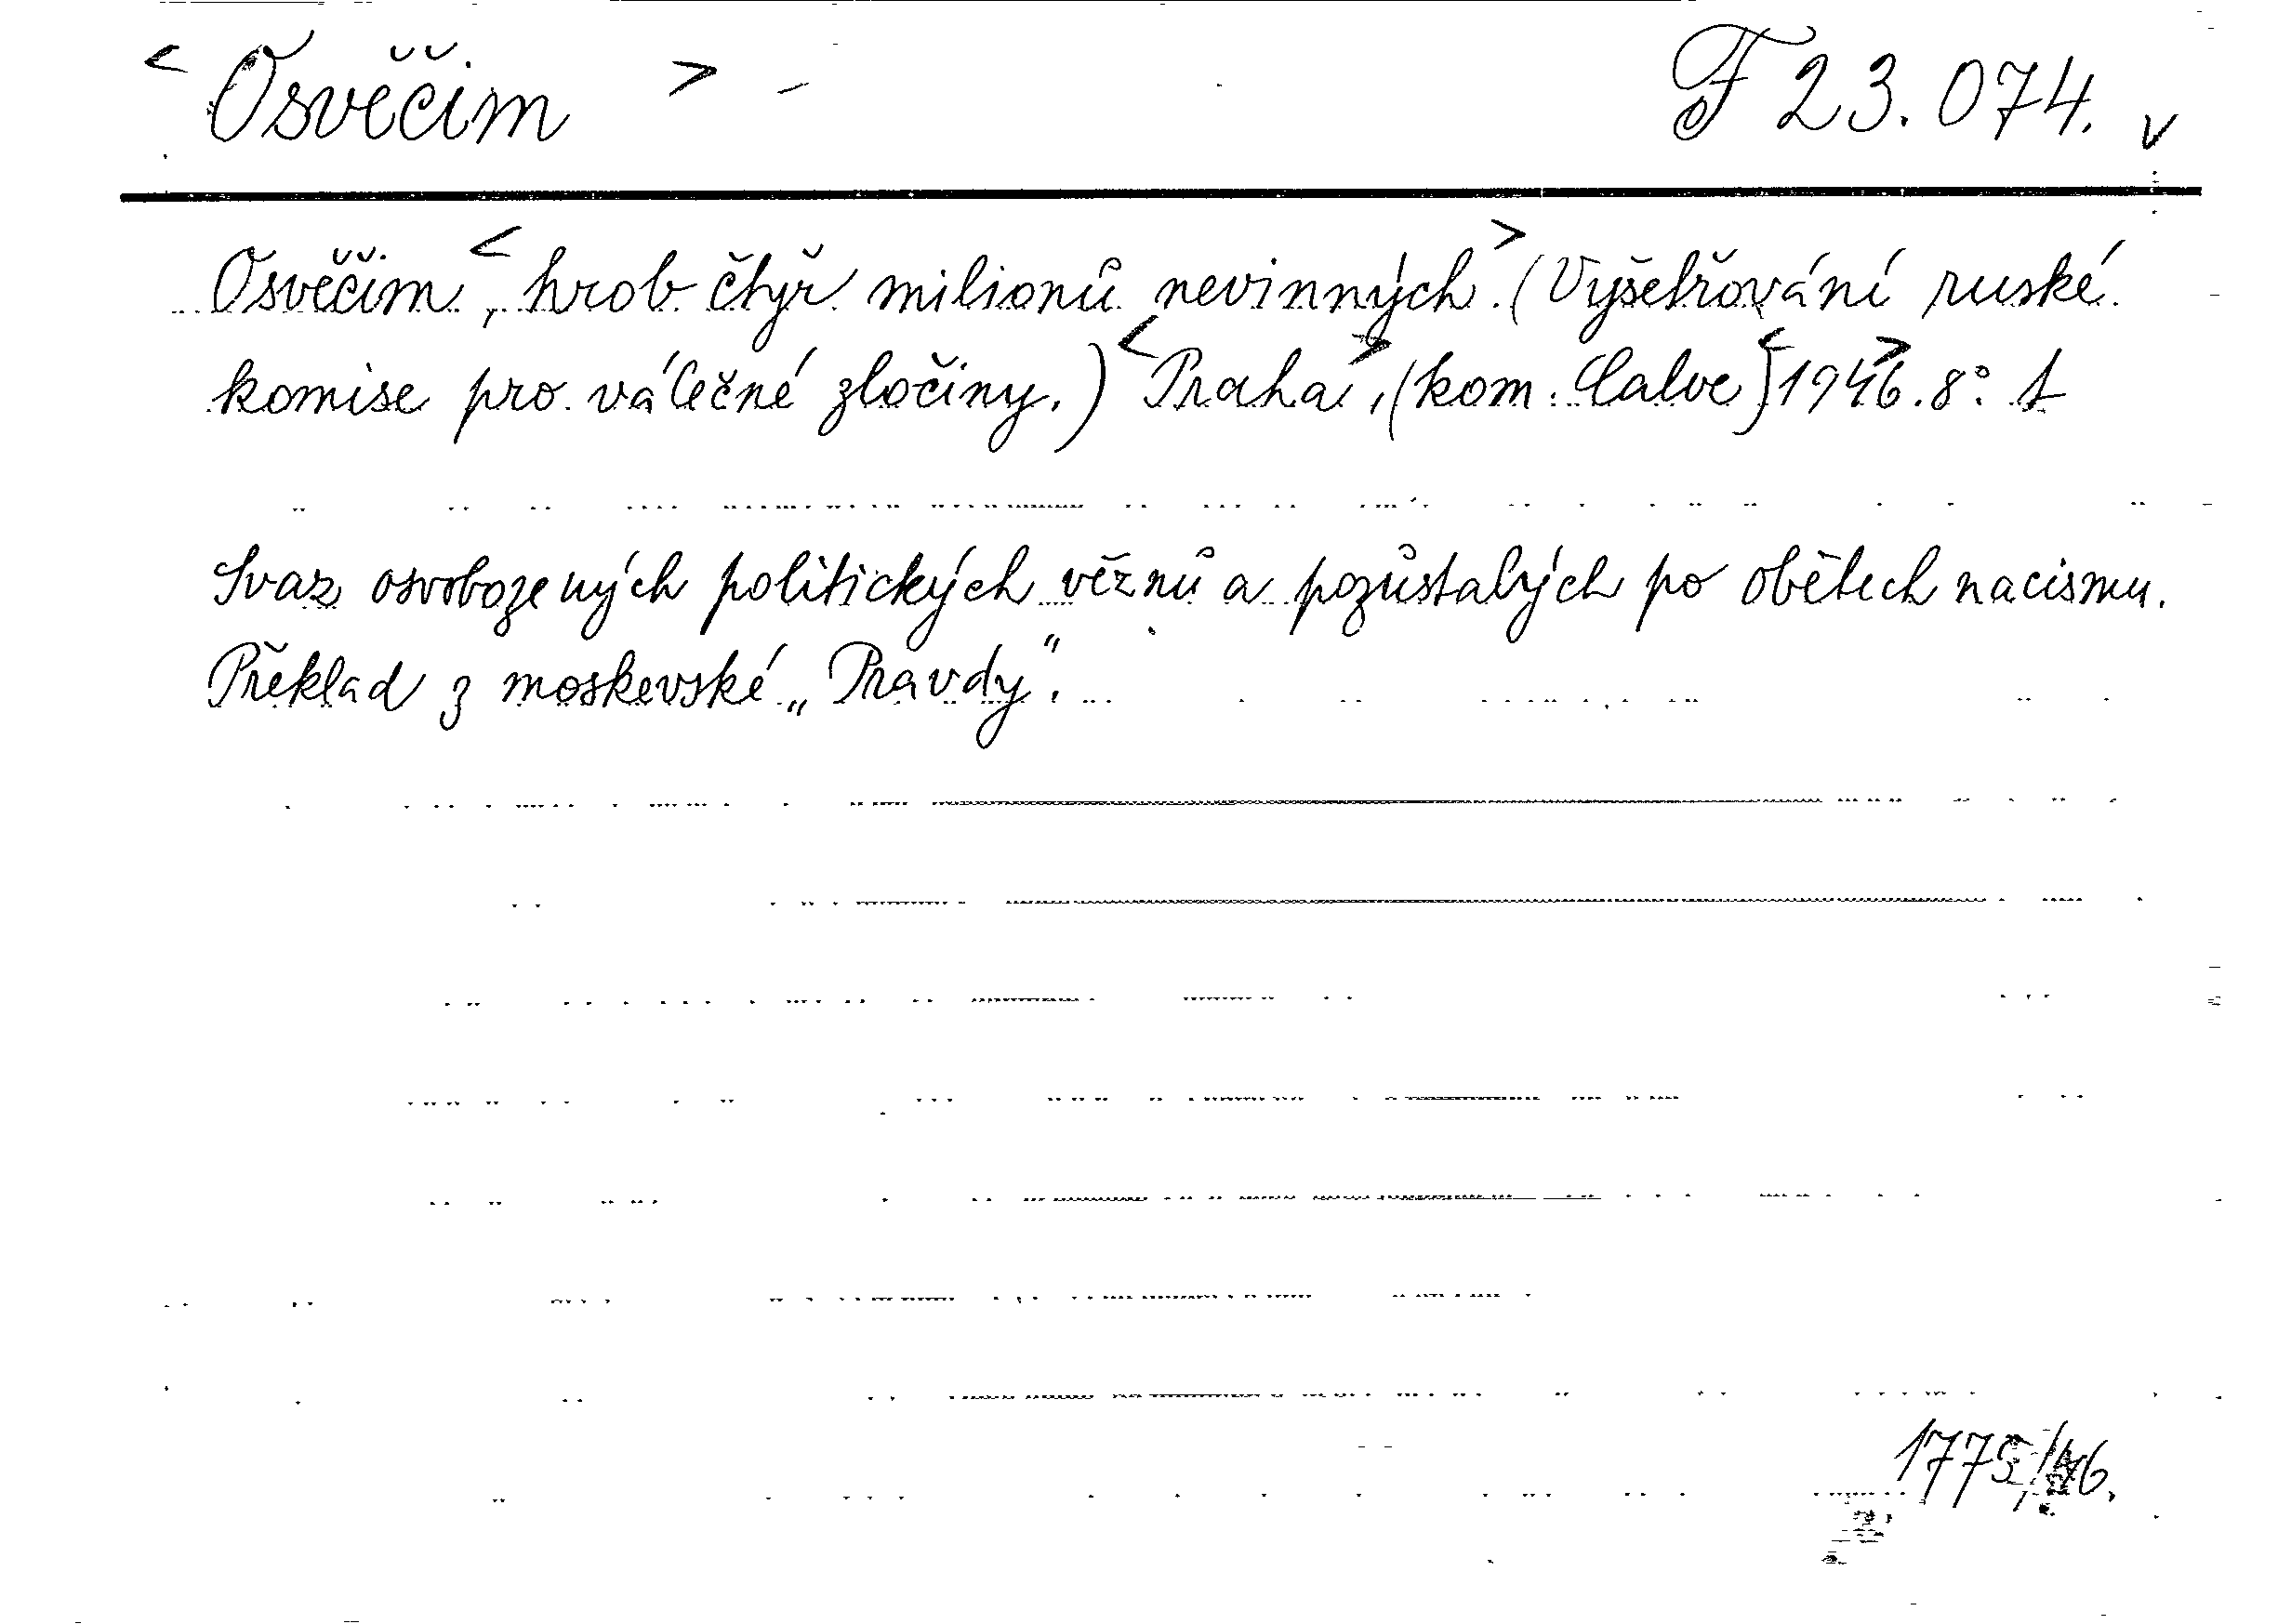 < Osvěčim > - F 23.074. v
Osvěčim, < hrob čtyř milionů nevinných. > (Vyšetřování ruské
komise pro válečné zločiny.) < Praha >, (kom. Calve) < 1946. > 8° 1
Svaz osvobozených politických vězňů a pozůstalých po obětech nacismu.
Překlad z moskevské „Pravdy".
1775/46.